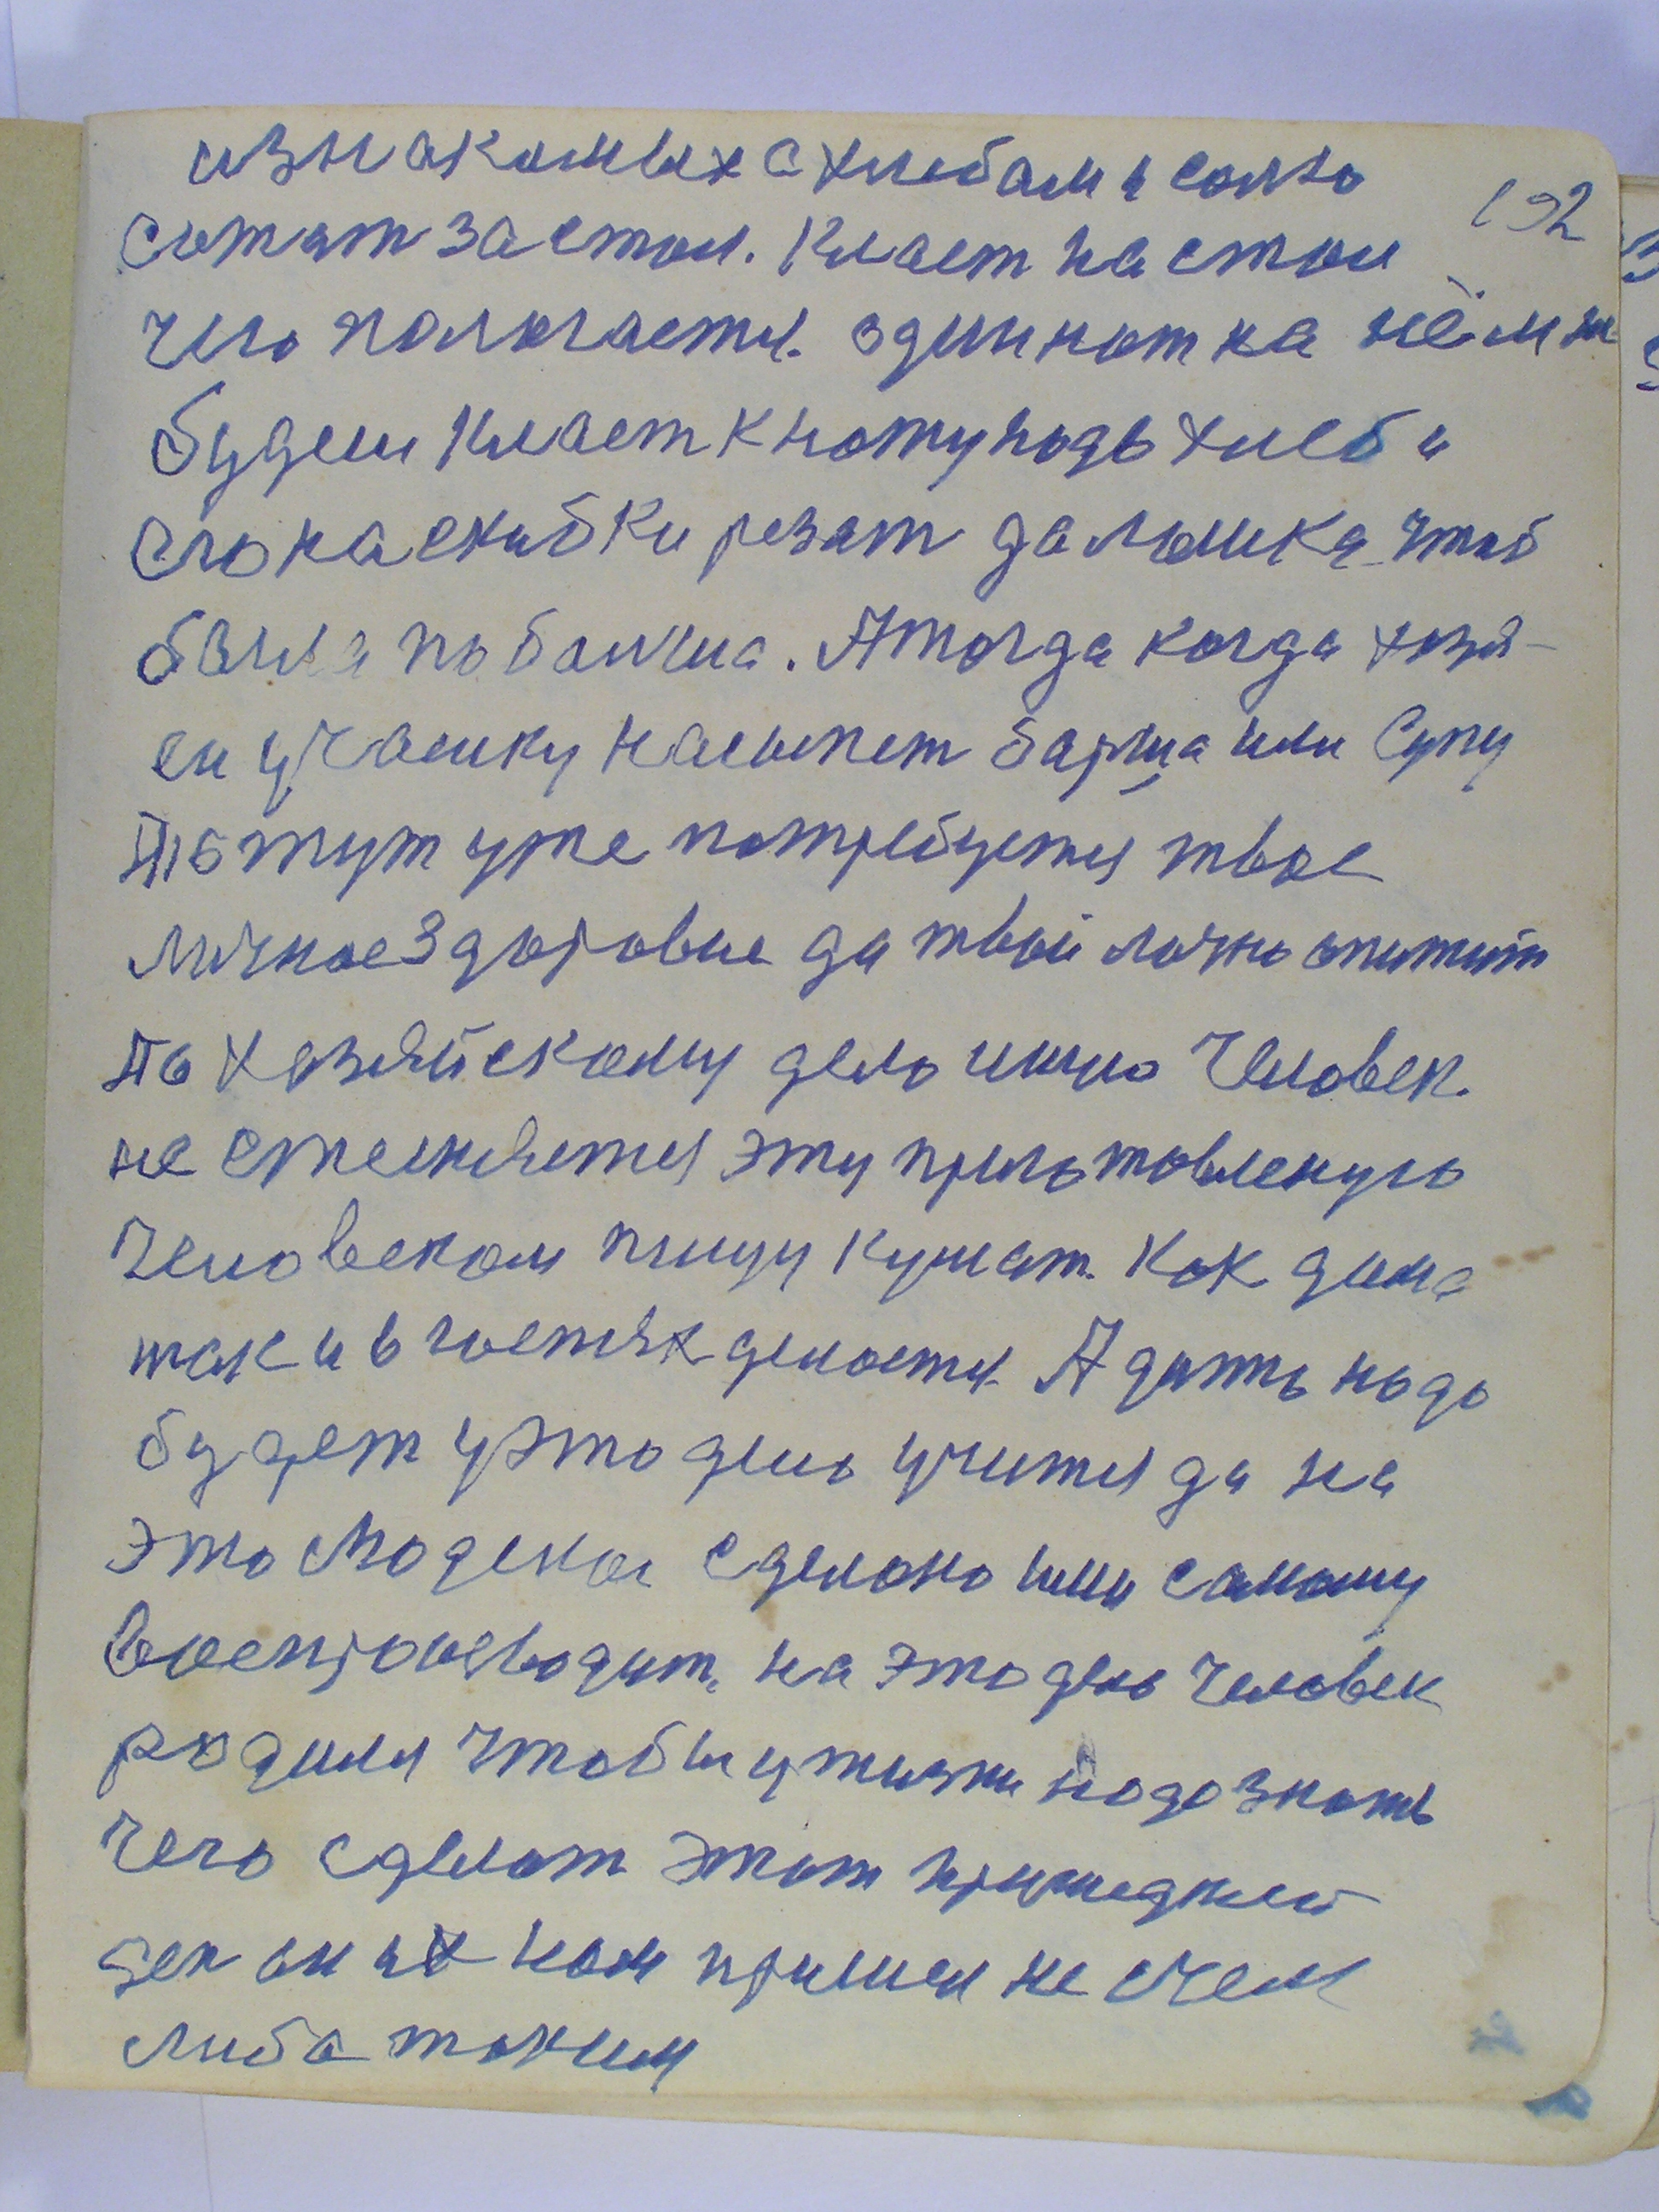 изнакомых с хлебам и солью
сотят застол. Клает на стол
192
чего полючается. один нот на нём н
будеш клает к ноту подь хлеб и
его на скибки резат да ломика чтоб
была побалша. А тогда когда хозя-
ен у чашку насыпет баршча или супу
по тут уже потребуется твое
личное здоровие да твой лично апитит
По хазяйскому дело ишло Человек
не стесняется эту приготовленую
Человеком пищу кушат. Как дома
так и в гостях делается. А дать надо
будет у это дело учится да на
это люденое сделано или самому
воспроизводит. на это дело Человек
родился чтобы у жизни надо знать
чего сделат этот пришедшей
ден он их нам пришел не счем
либа таким